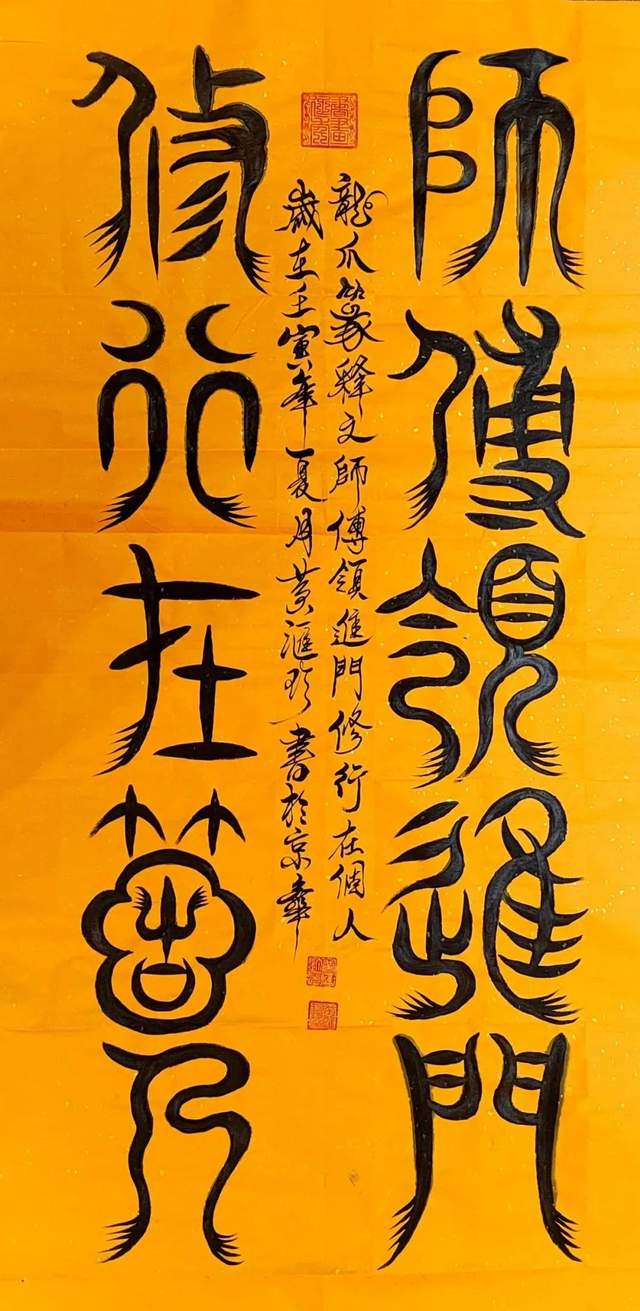 師傅領進門
龍爪篆释文師傅領進門修行在個人
歲在壬寅年夏月黄滙珍書於京華
修行在箇人